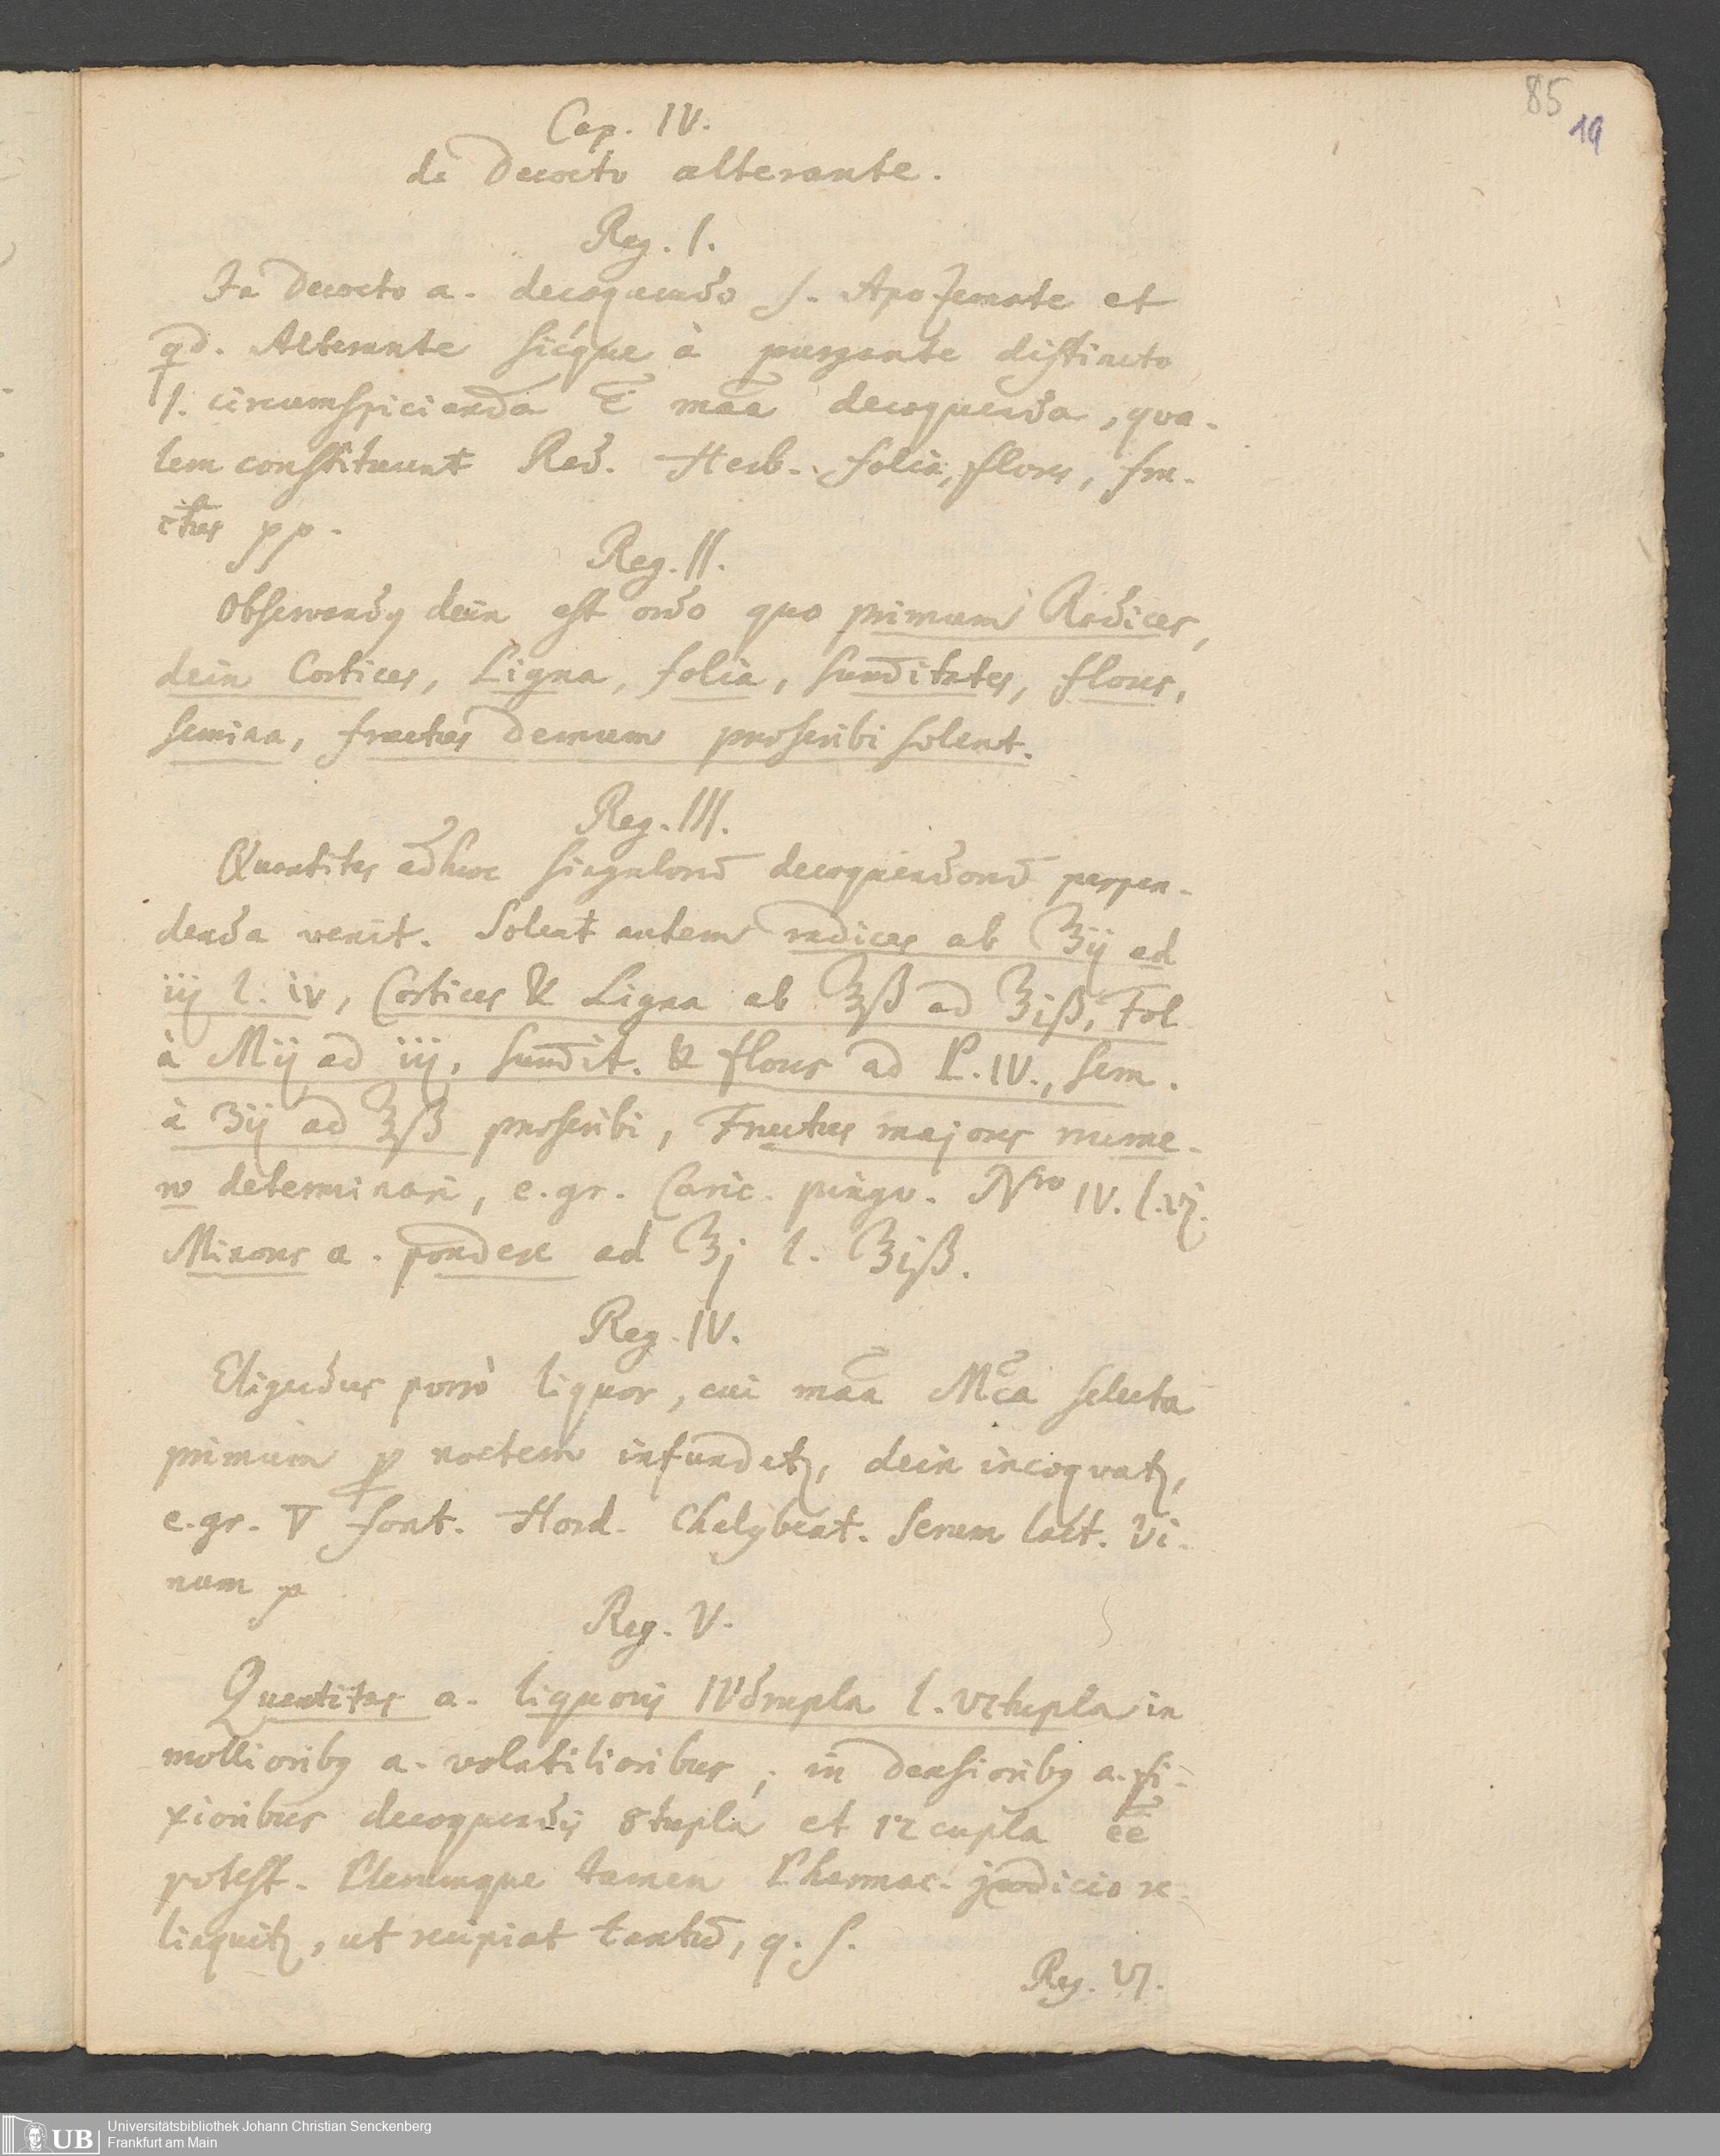 85
19
Cap. IV.
de Decocto alterante.
Reg. I.
In Decocto a. decoquendo s. Apozemate et
qd. Alterante sicque à purgante distincto
1. circumspicienda ē maā decoquenda, qua-
lem constituunt Rad. Herb. folia, flores, fru-
ctus pp.
Reg. II.
Observandꝰ dein est ordo quo primum Radices,
dein Cortices, Ligna, folia, sum̄itates, flores,
semina, fructus demum proscribi solent.
Reg. III.
Quantitas adhuc singulorū decoquendorū perpen-
denda venit. Solent autem radices ab ℥ij ad
iij l. iv, Cortices & Ligna ab ℥ß ad ℥iß, Fol
à Mij ad iij, sum̄it. & flores ad P. IV., sem.
à ʒij ad ℥ß proscribi, Fructus majores nume-
ro determinari, e. gr. Caric. pingv. Nro IV. l. vj.
Minores a. pondere ad ℥j l. ℥iß.
Reg. IV.
Eligendus porrò liquor, cui maā Mca selecta
primum p noctem infundatꝫ, dein incoquatꝫ,
e. gr. ▽ font. Hord. Chalybeat. Serum lact. Vi-
num p
Reg. V.
Quantitas a. liquoris IVdrupla l. VItupla in
mollioribꝰ a. volatilioribus, in densioribꝰ a. fi-
xioribus decoquendis 8tupla et 12cupla ee
potest. Plerumque tamen Pharmac. judicio re-
linquitꝫ, ut recipiat tantū, q. s.
Reg. VI.
UB
Universitätsbibliothek Johann Christian Senckenberg
Frankfurt am Main